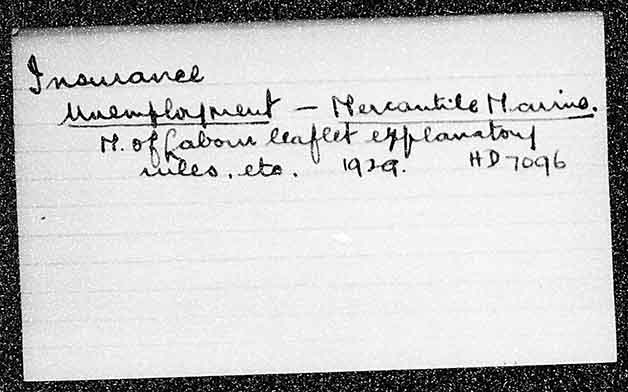 Insurance
Unemployment – Mercantile Marine.
M. of Labour leaflet explanatory
rules, etc. 1929. HD7096